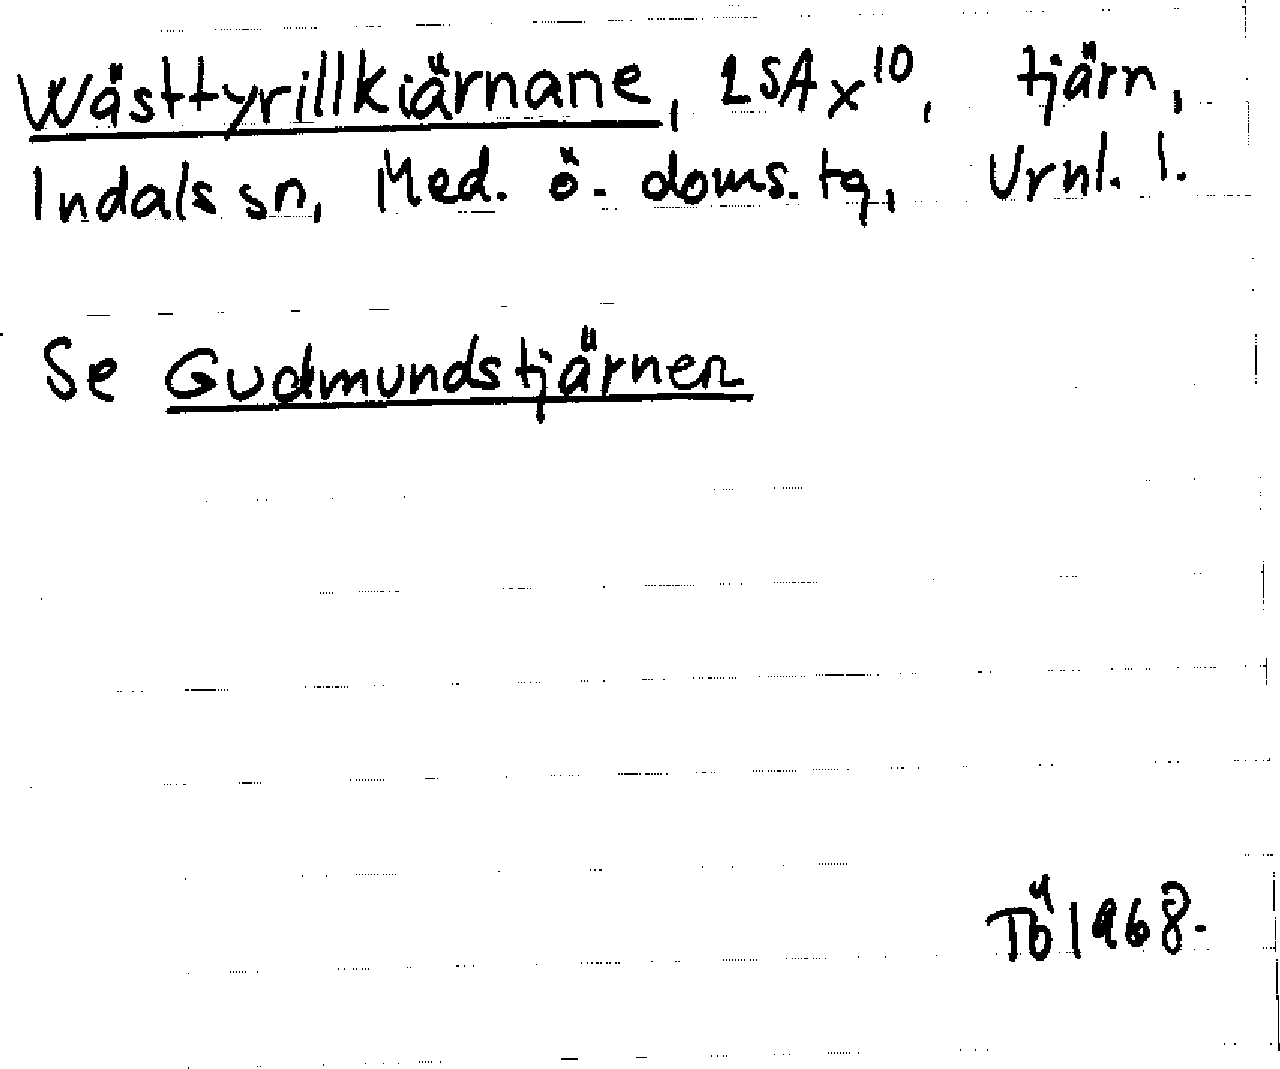 Wästtyrillkiärnane, LSA x¹⁰, tjärn,
Indals sn, Med. ö. doms. tg, Vrnl. l.
Se Gudmundstjärnen
TÖ 1968.